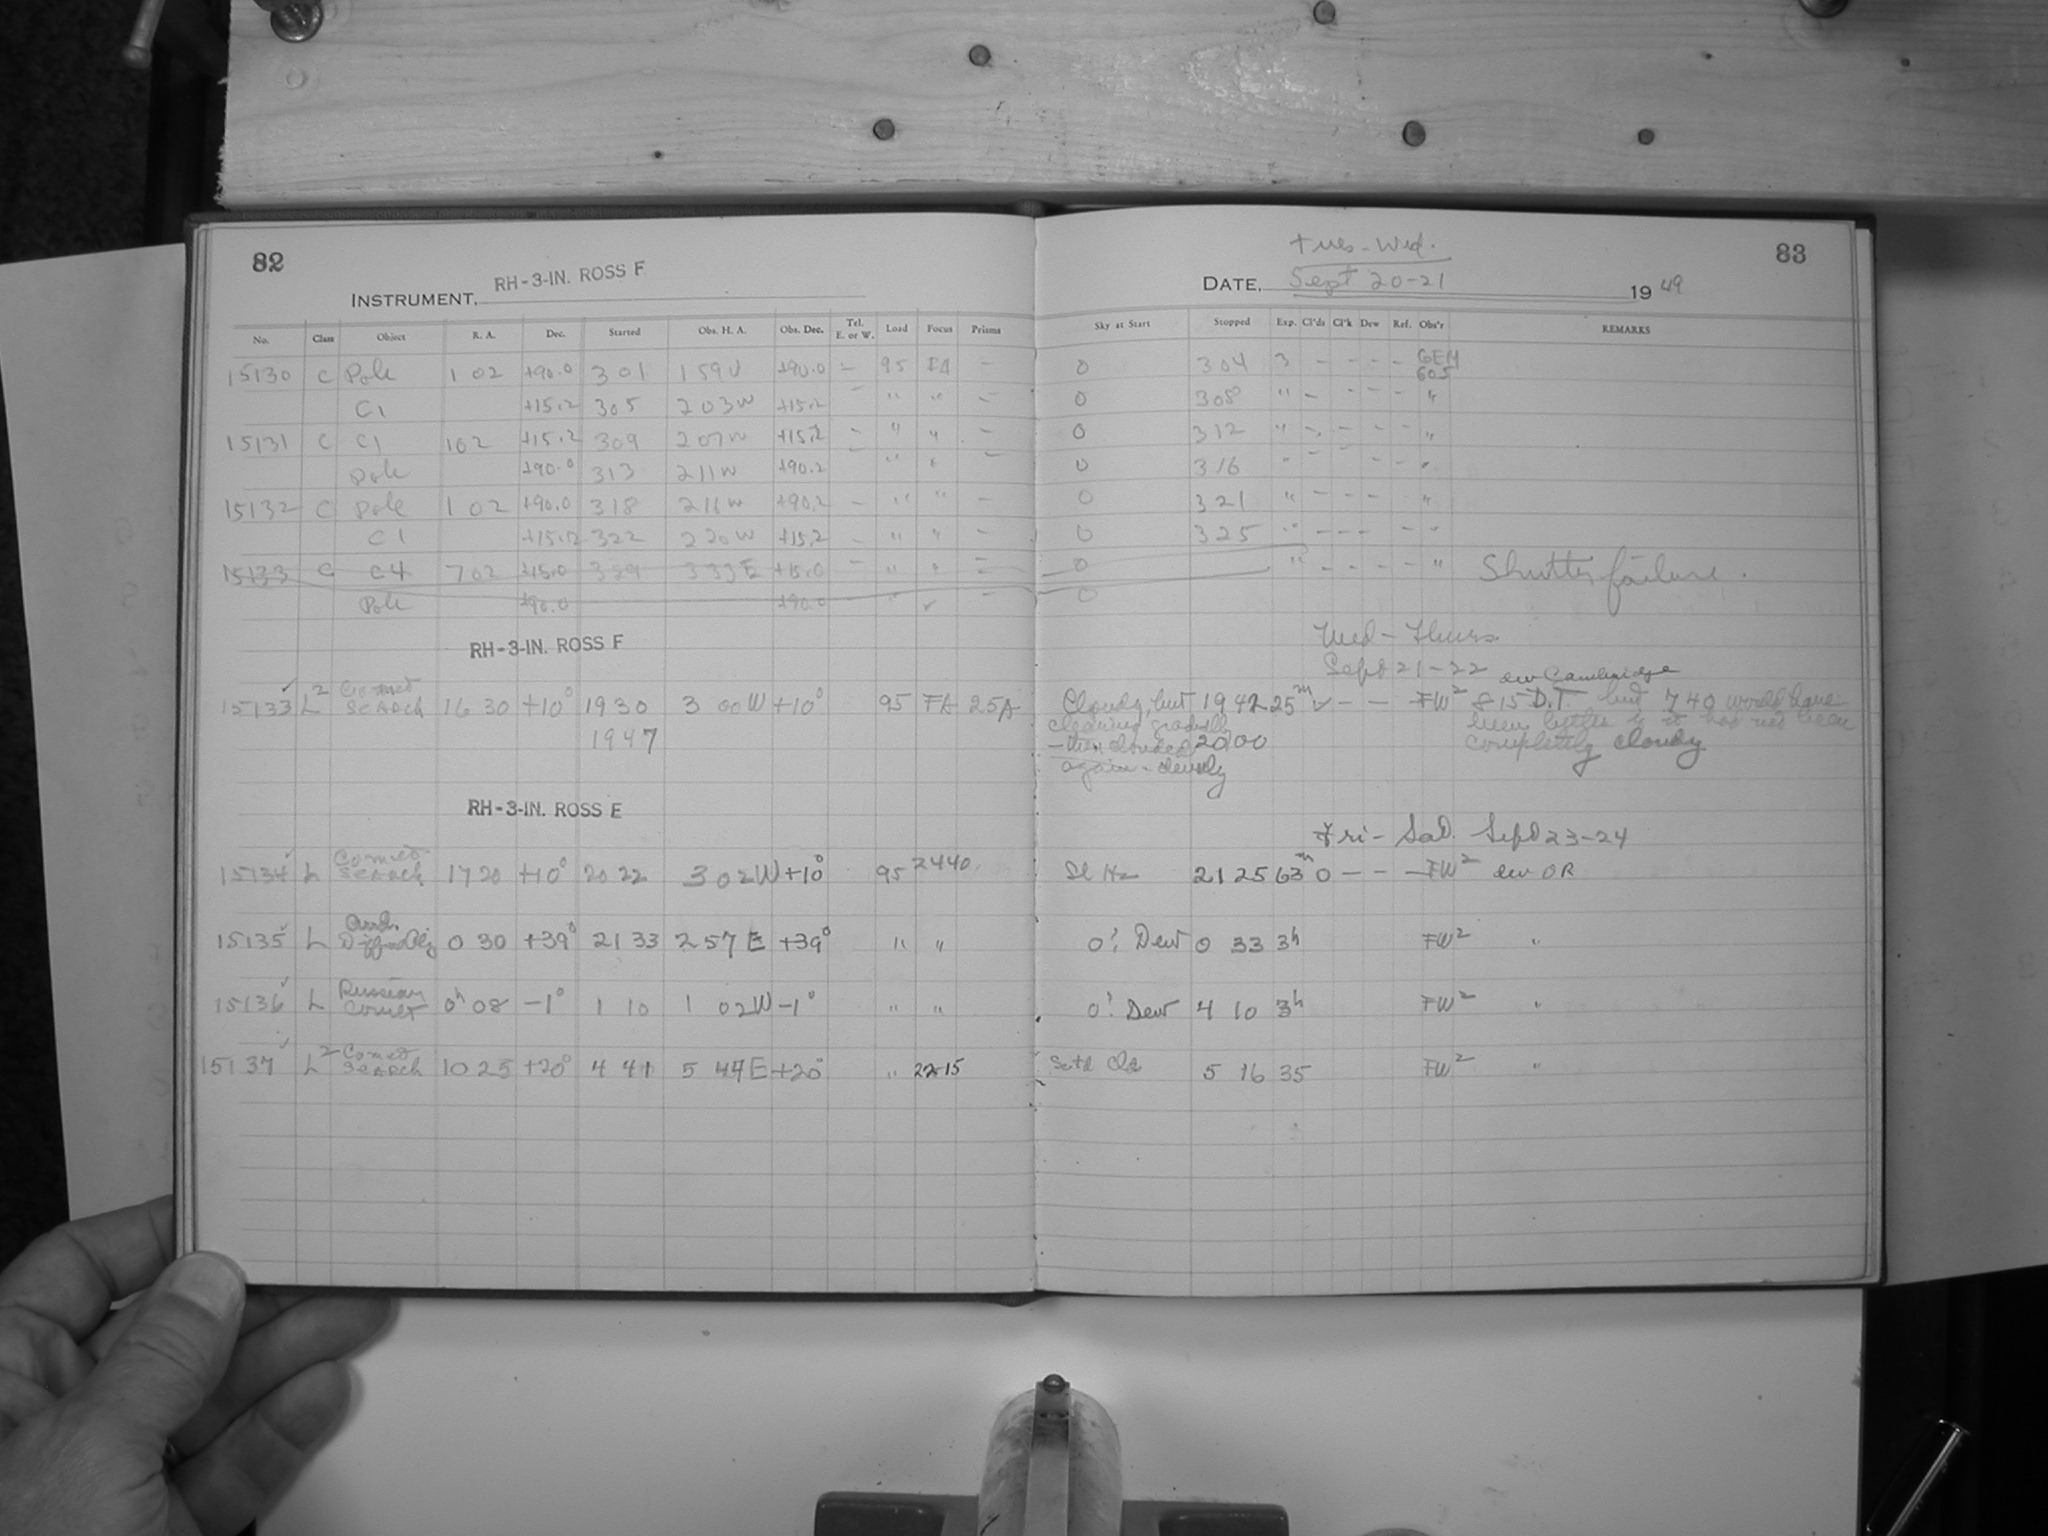 82
RH-3-IN. ROSS F
INSTRUMENT,
No. Class Object R. A. Dec. Started Obs. H. A. Obs. Dec. Tel. E. or W. Load Focus Prisms
15130 C Pole 1 02 +90.0 301 159W +90.0 - 95 FA -
C1 +15.2 305 203W +15.2 - " " -
15131 C C1 102 +15.2 309 207W +15.2 - " " -
Pole +90.0 313 211W +90.2 - " " -
15132 C Pole 1 02 +90.0 318 216W +90.2 - " " -
C1 +15.2 322 220W +15.2 - " " -
15133 C C4 702 +15.0 329 333E +15.0 - " " -
Pole +90.0 +90.0 " " -
RH-3-IN. ROSS F
15133 L2 Comet Search 16 30 +10° 1930 3 00W +10° 95 FA 25A
1947
RH-3-IN. ROSS E
15134 L Comet Search 17 20 +10° 20 22 3 02W +10° 95 2440
15135 L 0 30 +39° 21 33 2 57 E +39° " "
15136 L Russian Comet 0h 08 -1° 1 10 1 02W -1° " "
15137 L2 Comet Search 10 25 +20° 4 41 5 44E +20° " 2215
83
Tues-Wed.
DATE, Sept 20-21 1949
Sky at Start Stopped Exp. Cl'ds Cl'k Dew Ref. Obs'r REMARKS
0 304 3 - - - - GEM 605
0 308 " - - - - "
0 312 " - - - - "
0 316 " - - - - "
0 321 " - - - "
0 325 " - - - - - "
0 " - - - - " Shutter failure.
0
Wed-Thurs
Sept 21-22 ew Cambridge
Cloudy, but 1942 25m ✓ - - FW2 815 D.T. but 740 would have
clearing gradually been better if it had not been
- then clouded 2000 completely cloudy
again - densely
Fri-Sat. Sept 23-24
Sl Hz 21 25 63m 0 - - - FW2 ew OR
0! Dew 0 33 3h FW2 "
0! Dew 4 10 3h FW2 "
Sctd Cls 5 16 35 FW2 "